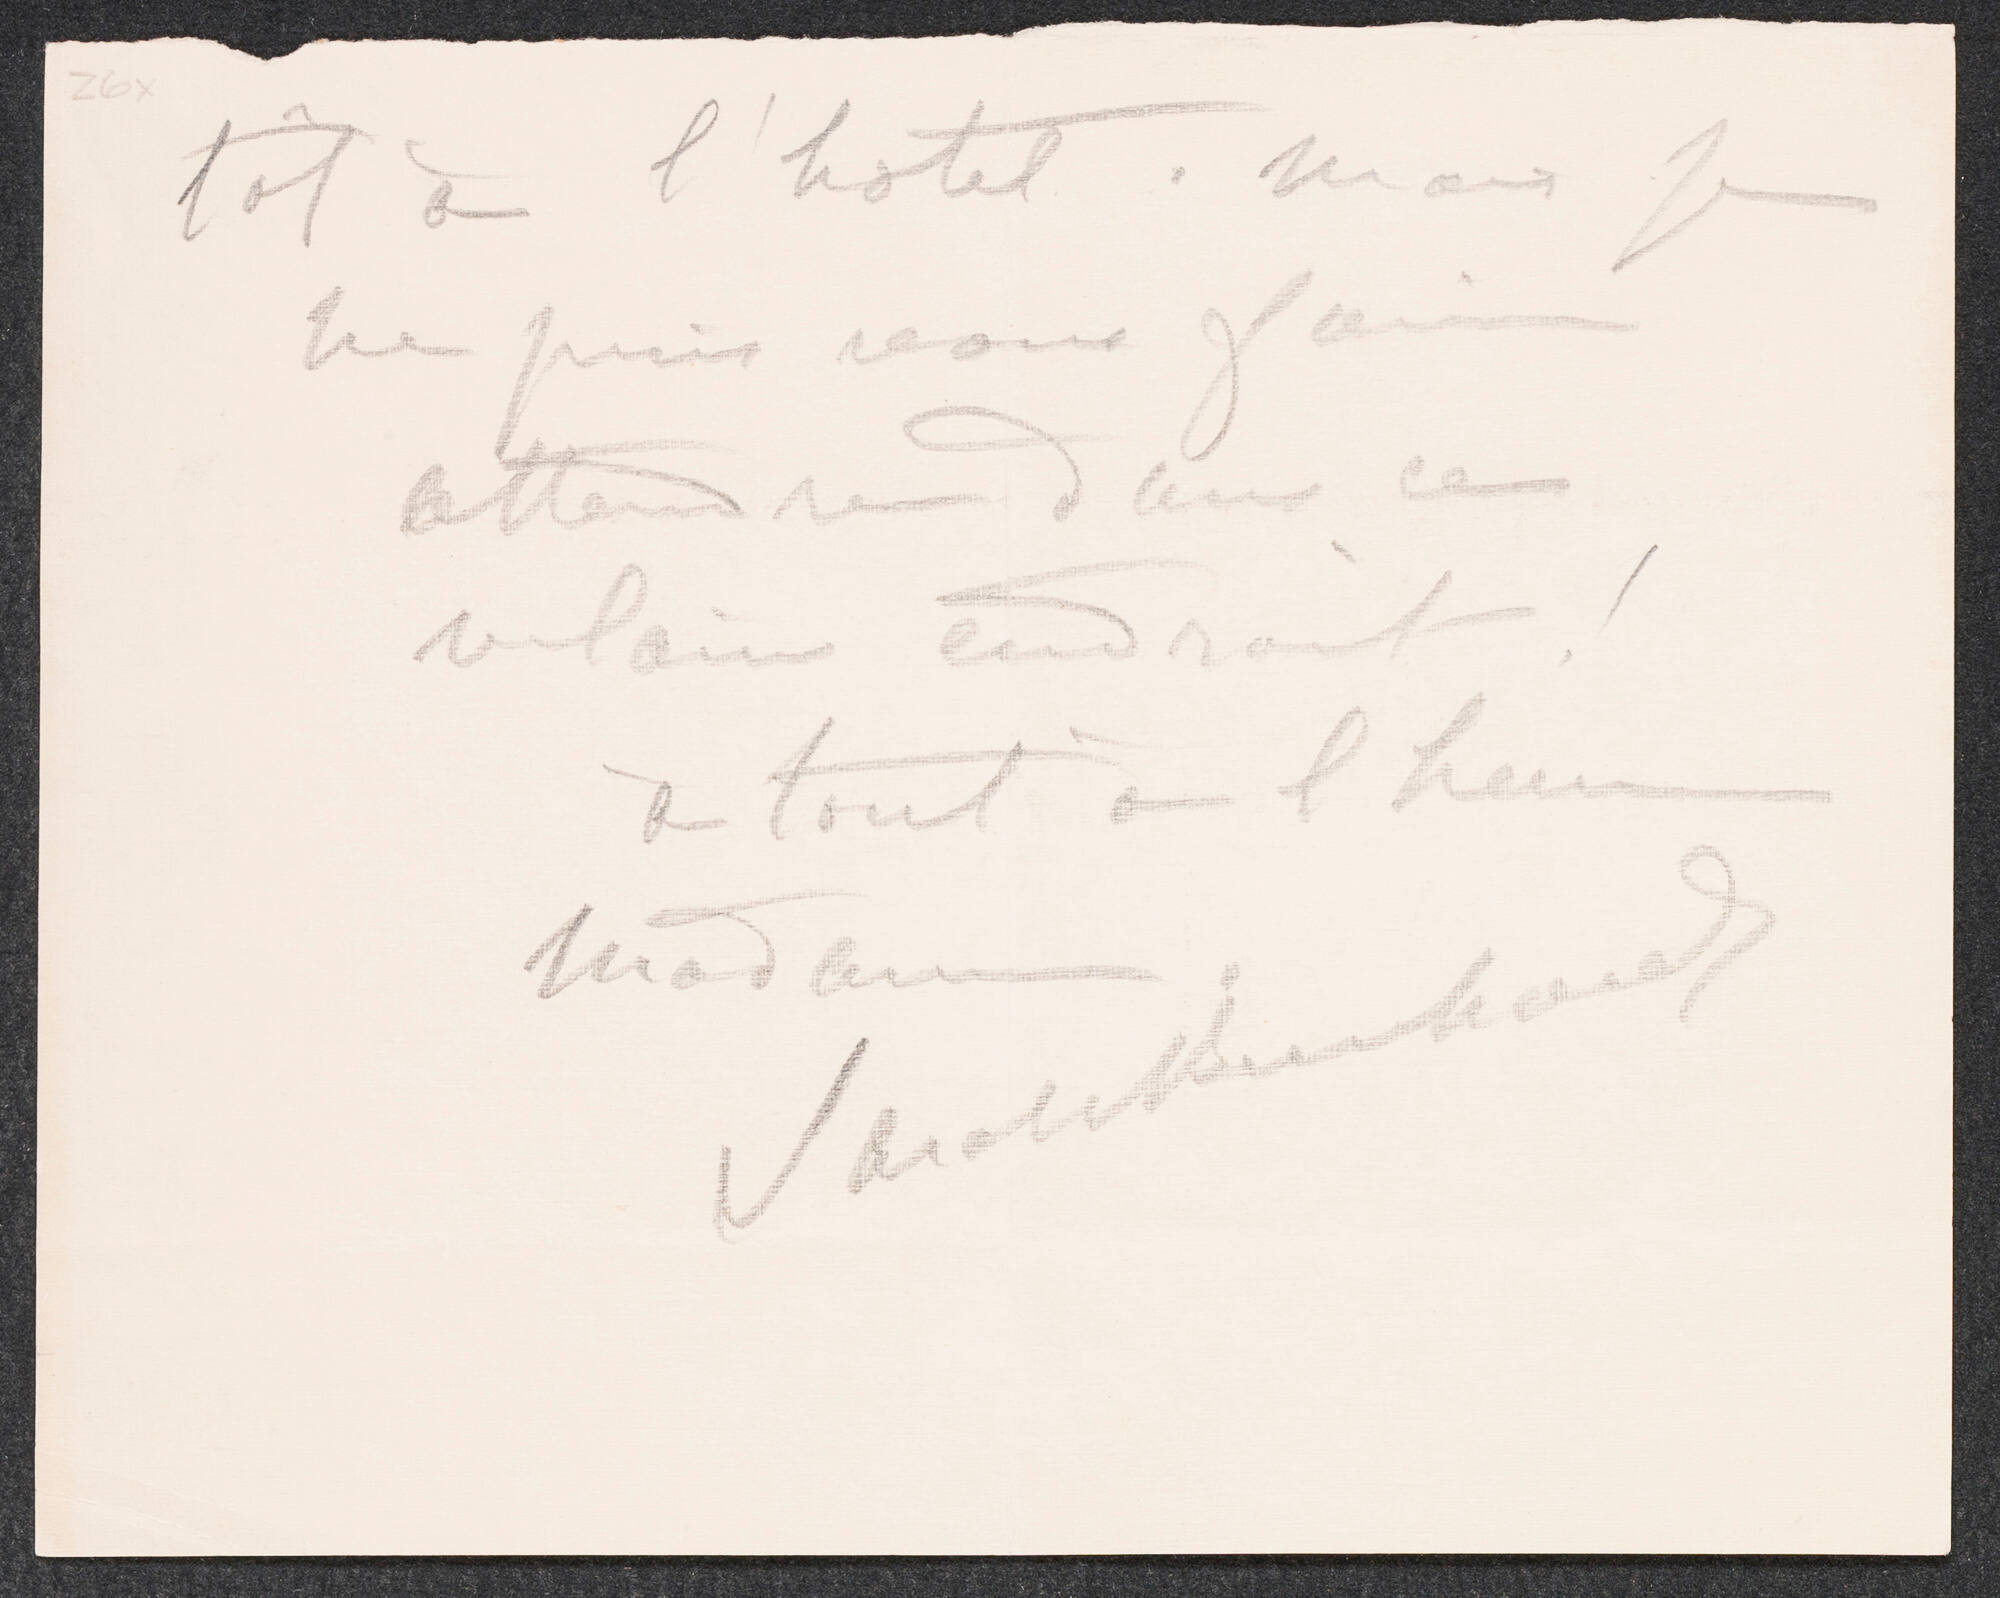 26x
tôt à l'hôtel. Mais je
ne puis vous faire
attendre dans ce
vilain endroit!
à tout à l heure
Madame
Sarah Bernhardt